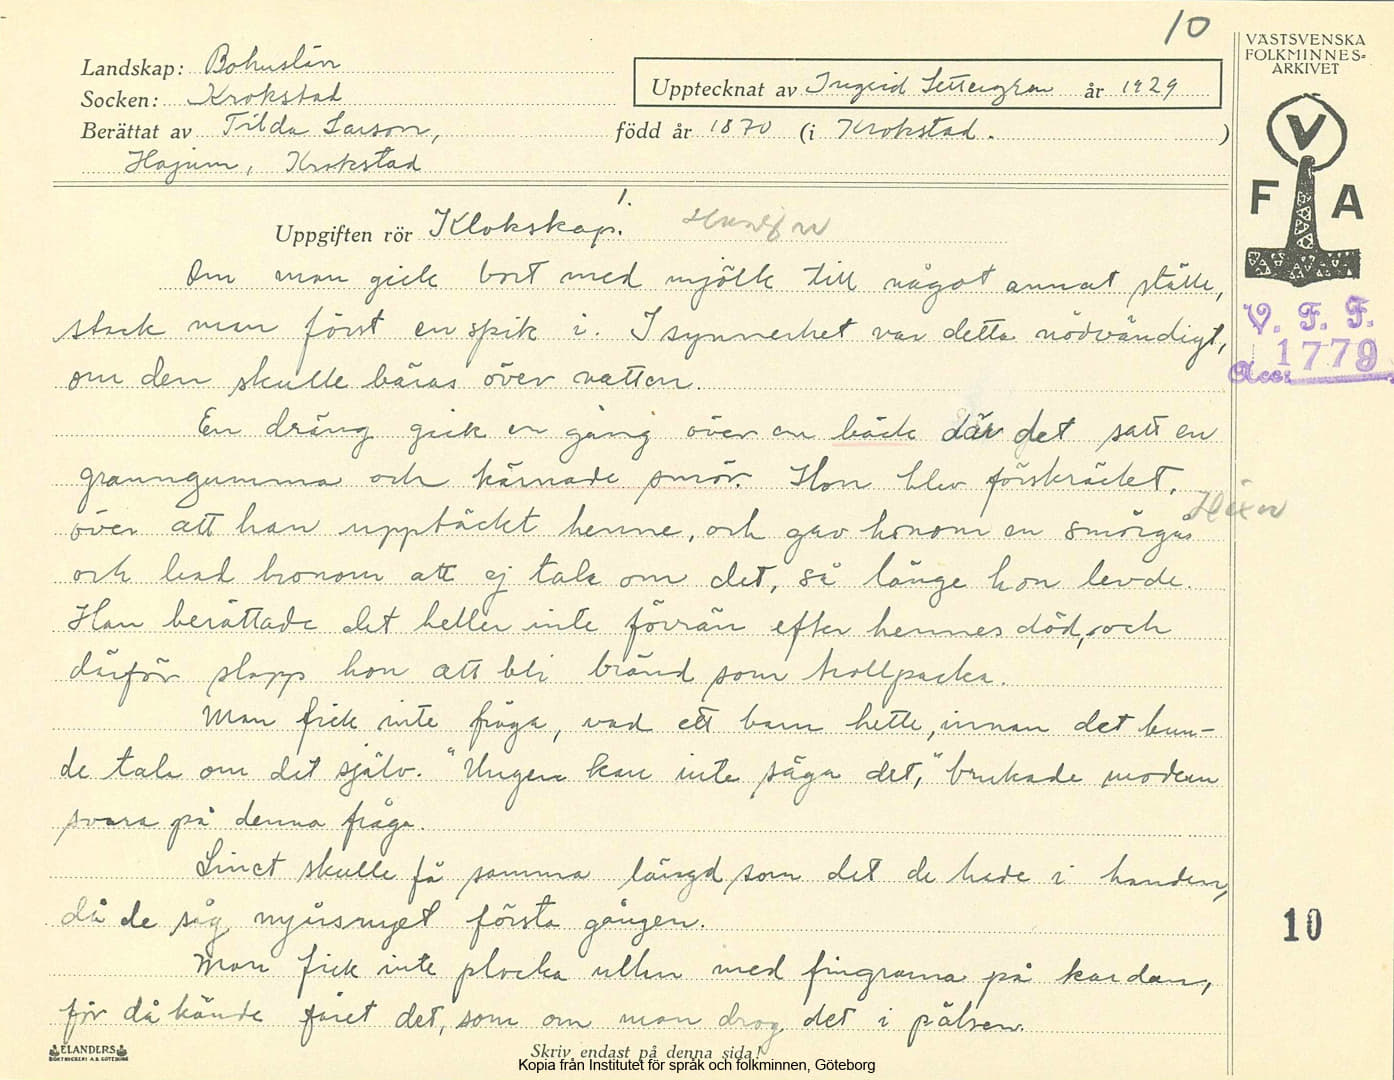 10
VÄSTSVENSKA
FOLKMINNES=
ARKIVET
Landskap: Bohuslän
Socken: Krokstad
Upptecknat av Ingrid Settergren år 1929
Berättat av Tilda Larson, född år 1870 (i Krokstad. )
Hajum, Krokstad
V
F A
Uppgiften rör Klokskap.
Om man gick bort med mjölk till något annat ställe,
stack man först en spik i. I synnerhet var detta nödvändigt,
V. F. F.
Acc: 1779
om den skulle bäras över vatten.
En dräng gick en gång över en bäck där det satt en
granngumma och kärnade smör. Hon blev förskräcket,
Häxor
över att han upptäckt henne, och gav honom en smörgås
och bad honom att ej tala om det, så länge hon levde.
Han berättade det heller inte förrän efter hennes död, och
därför slapp hon att bli bränd som trollpacka.
Man fick inte fråga, vad ett barn hette, innan det kun-
de tala om det själv. "Ungen kan inte säga det," brukade modern
svara på denna fråga.
Linet skulle få samma längd som det de hade i handen,
då de såg nyårsnyet första gången.
10
Man fick inte plocka ullen med fingrarna på kardan,
för då kände fåret det, som om man drog det i pälsen.
ELANDERS
BOKTRYCKERI A.B. GÖTEBORG
Skriv endast på denna sida!
Kopia från Institutet för språk och folkminnen, Göteborg